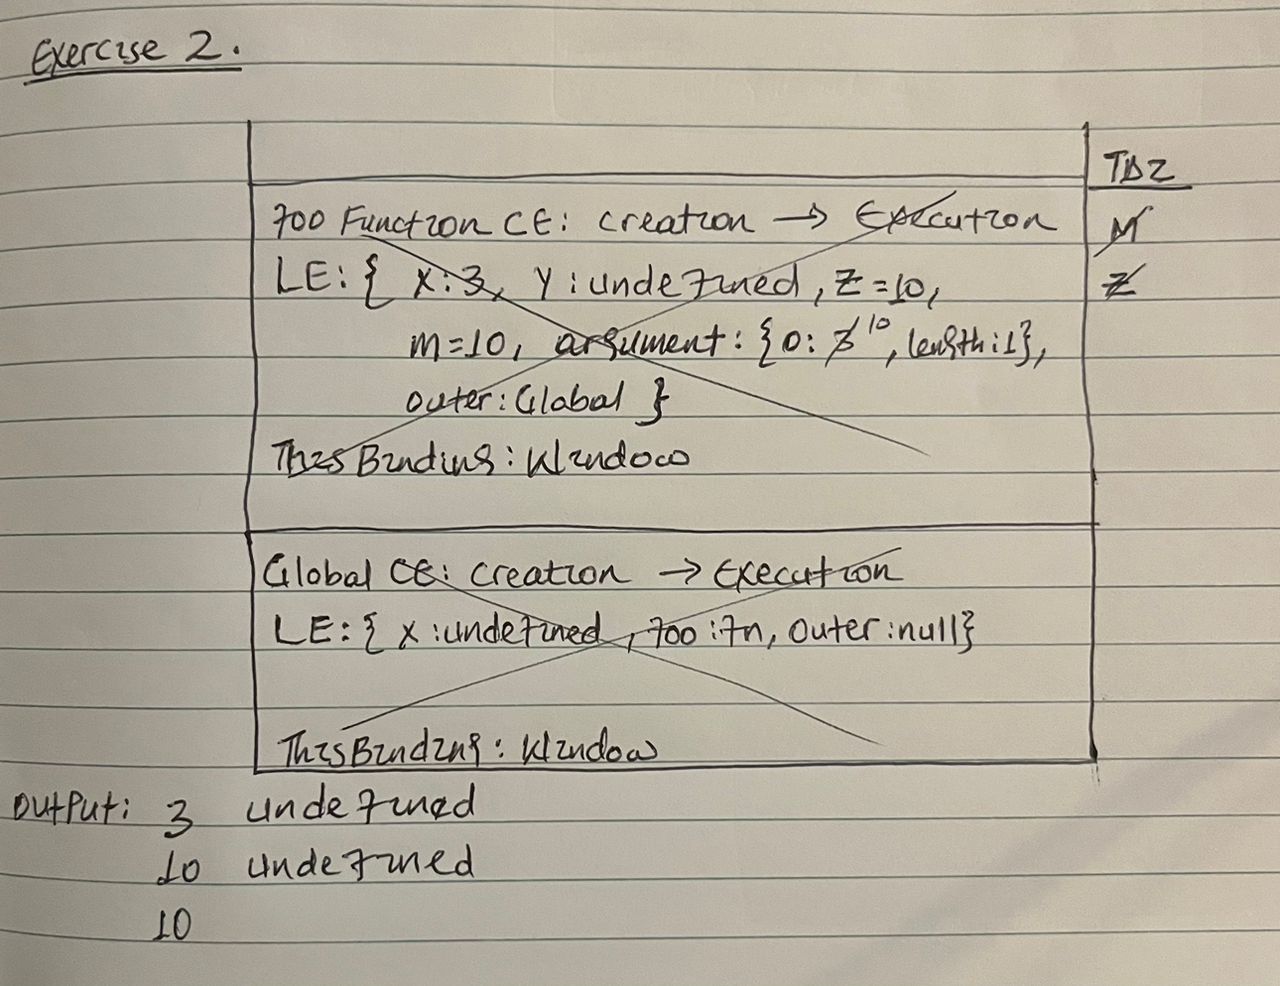 Exercise 2.
TDZ
foo Function CE: creation → Execution
M
LE: { X:3, Y:undefined, Z=10,
Z
m=10, argument: {0: 3 10, length:1},
outer: Global }
This Binding: Window
Global CE: creation → Execution
LE: { X:undefined, foo:fn, outer:null}
ThisBinding: Window
Output: 3 undefined
10 undefined
10